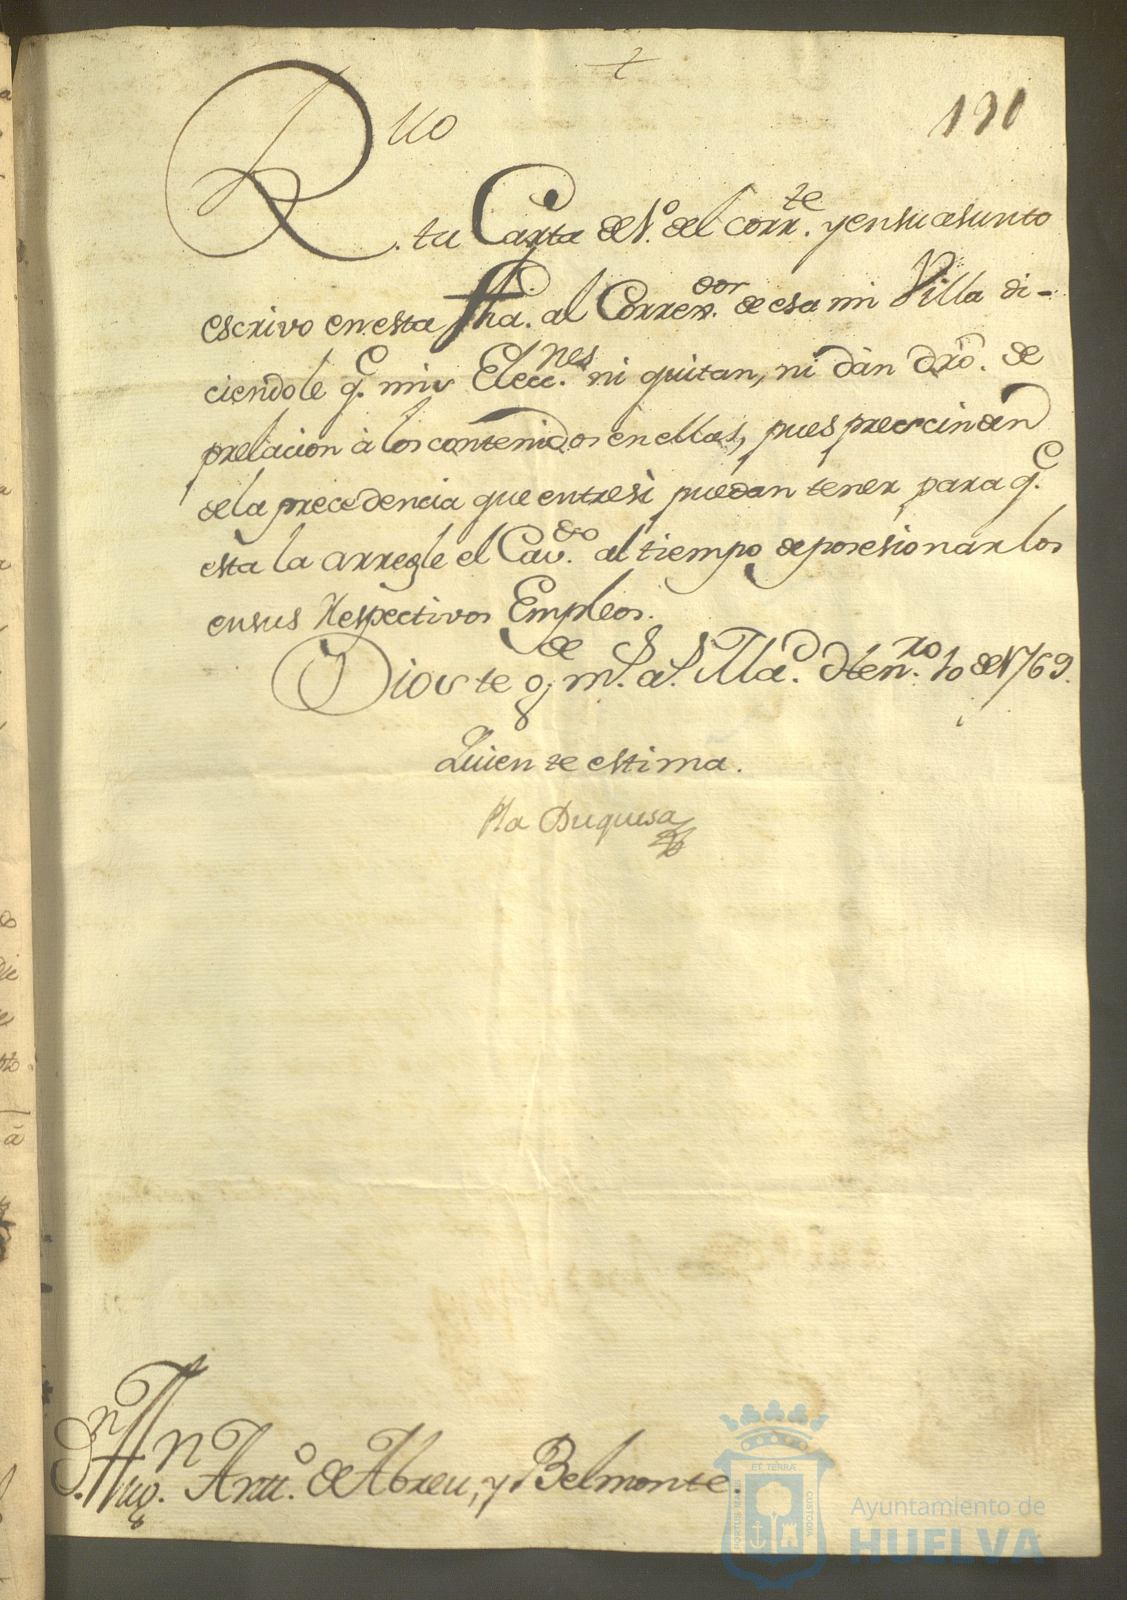 +
191
Rvo
tu Carta de 1.º del corr.te y en su asunto
escrivo en esta fha. al Correx.dor de esa mi Villa di-
ciendole q.e mis Elecc.nes ni quitan, ni dàn dro. de
prelacion à los contenidos en ellas, pues prescinden
de la precedencia que entre sì puedan tener para q.e
esta la arregle el Cav.do al tiempo de posesionar los
en sus respectivos Empleos.
Dios te g.de m.s a.s Va. Hen.ro 10 de 1769.
Quien te estima.
La Duquesa
D.n Aug.n Ant.º de Abreu, y Belmonte.
ET TERRÆ
PORTUS MARIS
CUSTODIA
Ayuntamiento de
HUELVA